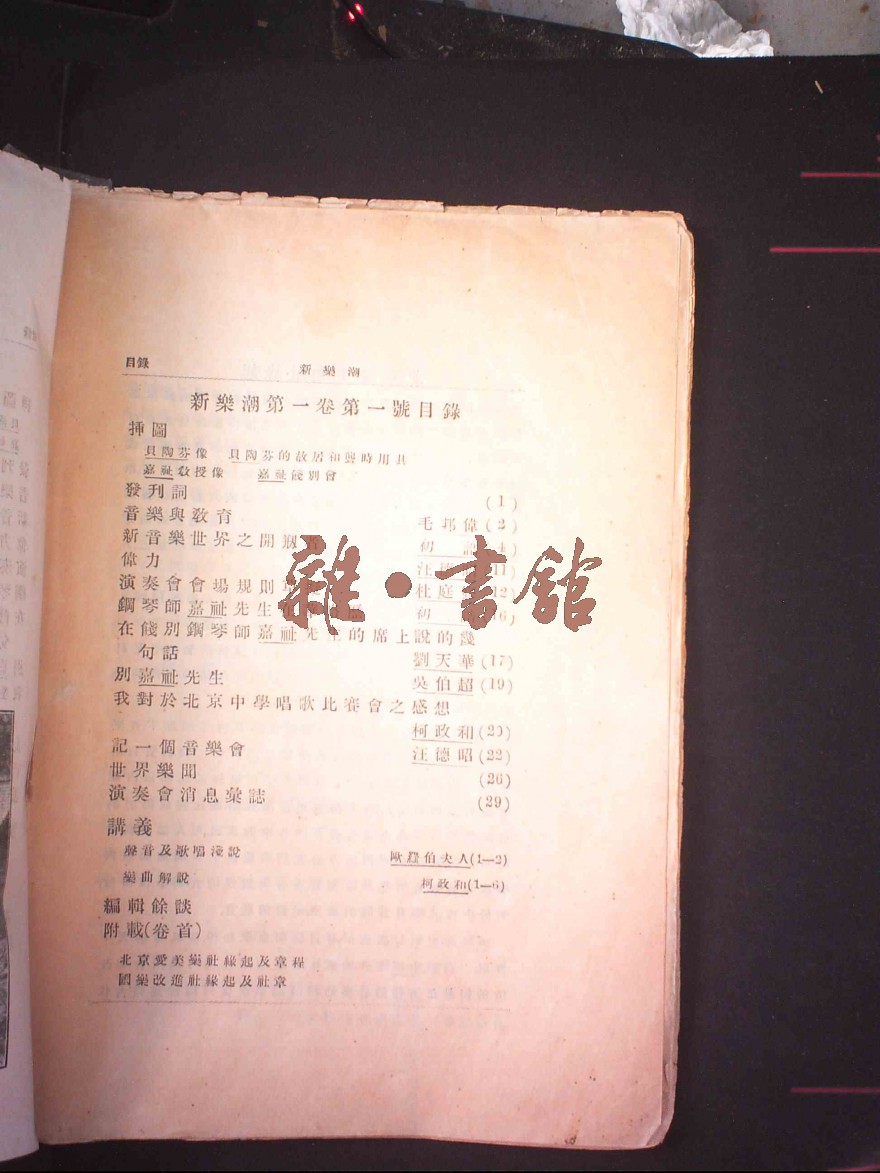 目錄 新樂潮
新樂潮第一卷第一號目錄
插圖
貝陶芬像 貝陶芬的故居和聾時用具
嘉祉教授像 嘉祉餞別會
發刊詞 (1)
音樂與敎育 毛邦偉(2)
新音樂世界之開
偉力 汪
演奏會會場規則 杜庭
鋼琴師嘉祉先生
在餞別鋼琴師嘉祉先生的席上說的幾
句話 劉天華(17)
別嘉祉先生 吳伯超(19)
我對於北京中學唱歌比賽會之感想
柯政和(20)
記一個音樂會 汪德昭(22)
世界樂聞 (26)
演奏會消息彙誌 (29)
講義
聲音及歌唱淺說 歐 伯夫人(1—2)
樂曲解說 柯政和(1—6)
編輯餘談
附載(卷首)
北京愛美樂社緣起及章程
國樂改進社緣起及社章
雜·書館